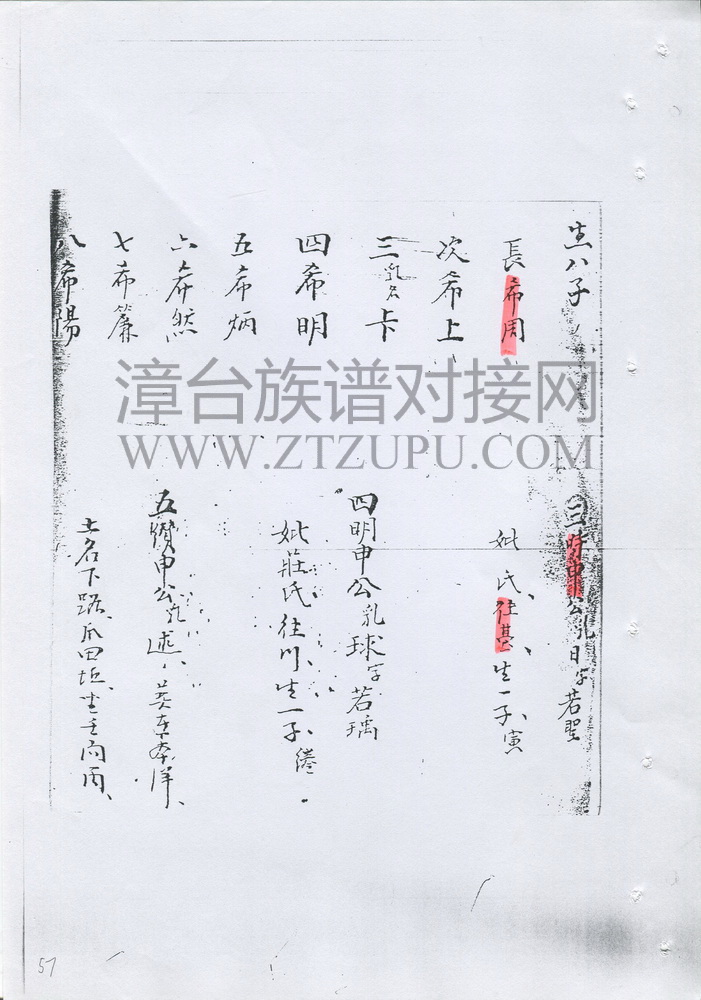 生八子
長希周
次希上
三乳名卡
四希明
五希炳
六希然
七希簾
八希陽
三時申公乳日字若聖
妣 氏、往甚、生一子、寅
四明申公乳球字若瑀
妣莊氏往川、生一子、港
五儹申公乳述、葬東奉洋、
土名下路爪田坵、坐壬向丙、
漳台族谱对接网
WWW.ZTZUPU.COM
57